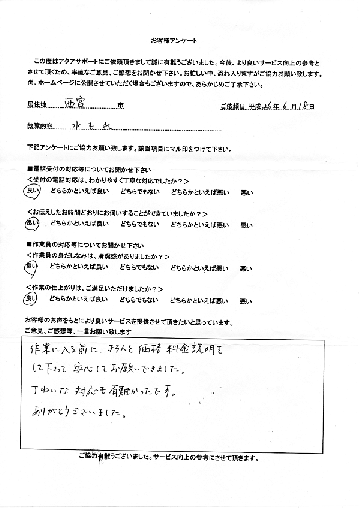 お客様アンケート
この度はアクアサポートにご依頼頂きまして誠に有難うございました。今後、より良いサービス向上の参考と
させて頂くため、率直なご意見、ご感想をお聞かせ下さい。お忙しい中、恐れ入りますがご協力お願い致します。
尚、ホームページに公開させていただく場合もございますので、あらかじめご了承下さい。
居住地 西宮 市 ご依頼日 平成26年6月18日
依頼内容 水もれ
下記アンケートにご協力お願い致します。該当項目にマル印をつけて下さい。
■電話受付の対応等についてお聞かせ下さい
＜受付の電話対応は、わかりやすく丁寧な対応でしたか？＞
良い どちらかといえば良い どちらでもない どちらかといえば悪い 悪い
＜お伝えしたお時間どおりにお伺いすることができていましたか？＞
良い どちらかといえば良い どちらでもない どちらかといえば悪い 悪い
■作業員の対応等についてお聞かせ下さい
＜作業員の身だしなみは、清潔感がありましたか？＞
良い どちらかといえば良い どちらでもない どちらかといえば悪い 悪い
＜作業の仕上がりは、ご満足いただけましたか？＞
良い どちらかといえば良い どちらでもない どちらかといえば悪い 悪い
お客様のお声をもとにより良いサービスを提供させて頂きたいと思っています。
ご意見、ご感想等、一言お願い致します
作業に入る前に、きちんと価格 料金説明を
して下さって 安心してお願いできました。
ていねいな 対応も有難かったです。
ありがとうございました。
ご協力有難うございました。サービス向上の参考にさせて頂きます。